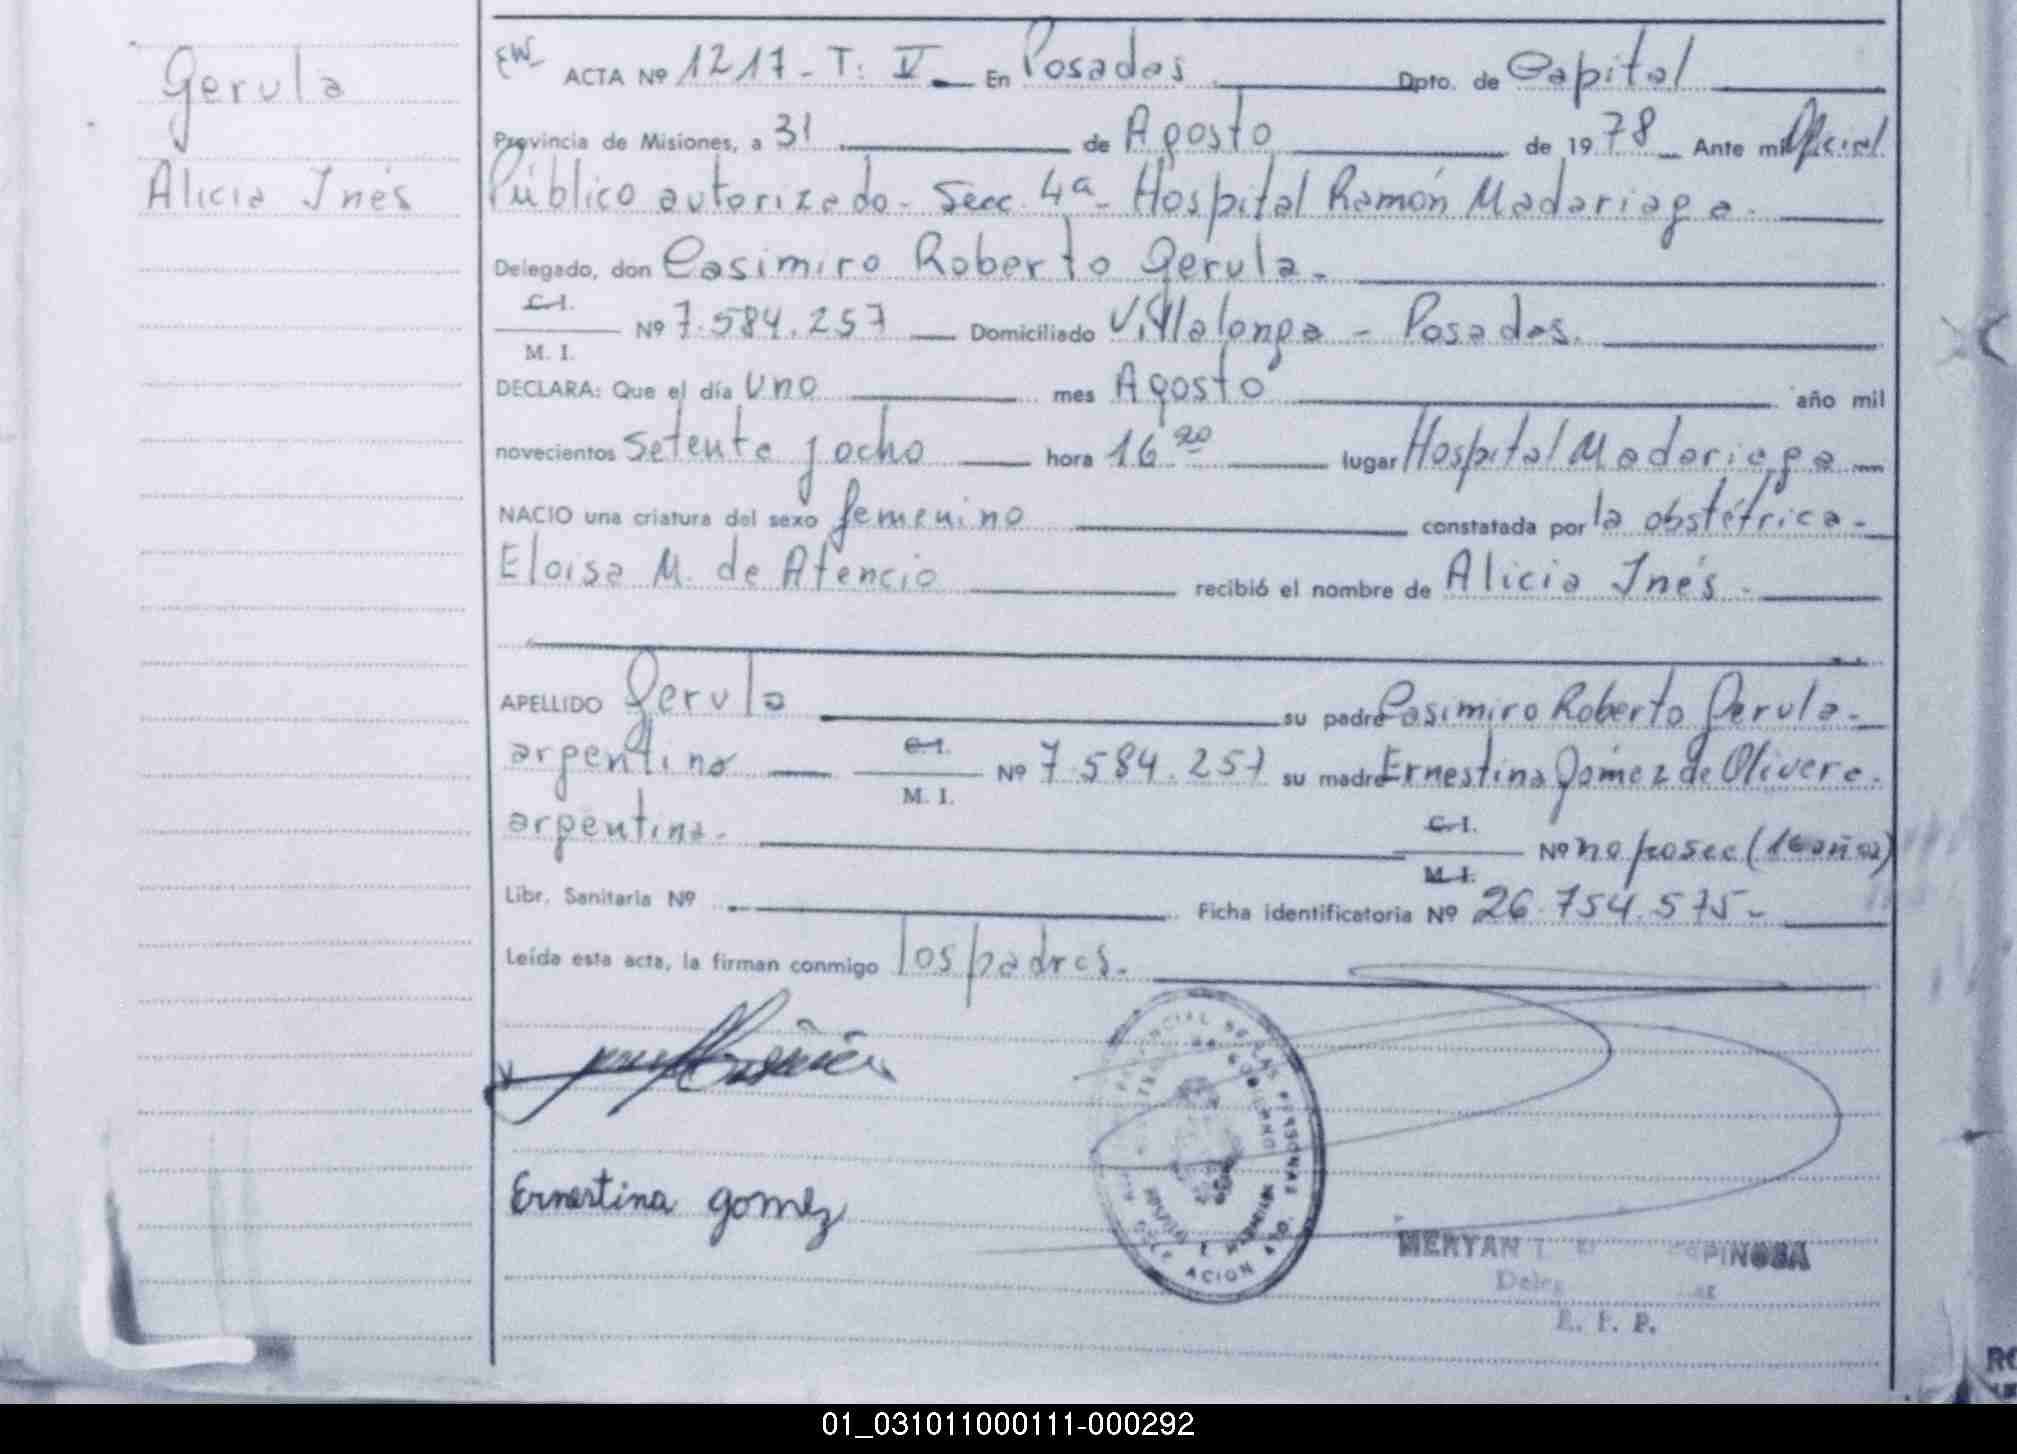 Gerula
Alicia Inés
EW
ACTA Nº 1217 - T: V - En Posadas Dpto. de Capital
Provincia de Misiones, a 31 de Agosto de 1978 Ante mi Oficial
Público autorizado - Secc. 4ª - Hospital Ramón Madariaga.
Delegado, don Casimiro Roberto Gerula -
C.I.
M. I.
Nº 7.584.257 Domiciliado Villalonga - Posadas.
DECLARA: Que el día uno mes Agosto año mil
novecientos setenta y ocho hora 16 20 lugar Hospital Madariaga
NACIO una criatura del sexo femenino constatada por la obstétrica -
Eloisa M. de Atencio recibió el nombre de Alicia Inés -
APELLIDO Gerula su padre Casimiro Roberto Gerula -
argentino C.I. M. I. Nº 7.584.257 su madre Ernestina Gómez de Olivera.
argentina. C.I. M. I. Nº no posee (16 años)
Libr. Sanitaria Nº Ficha identificatoria Nº 26.754.575 -
Leída esta acta, la firman conmigo los padres.
Ernestina gomez
PROVINCIAL DE LAS PERSONAS
MERYAN ESPINOSA
R. P. P.
01_031011000111-000292